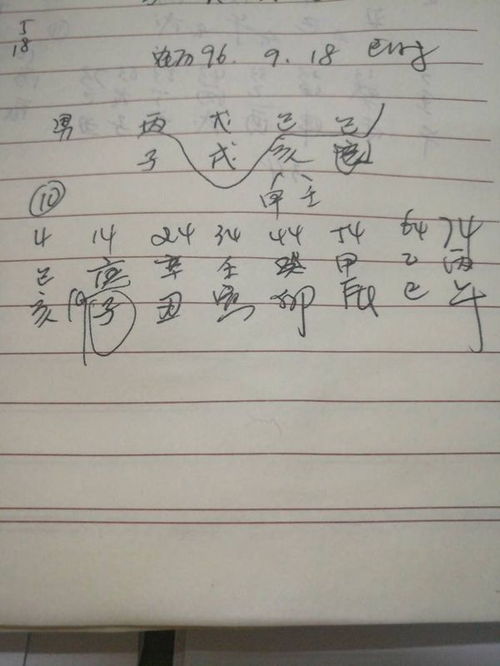 5
18
96. 9. 18 巳时
男 丙 戊 己 己
子 戌 亥
甲 壬
⑩
4 14 24 34 44 54 64 74
己 庚 辛 壬 癸 甲 乙 丙
亥 子 丑 寅 卯 辰 巳 午